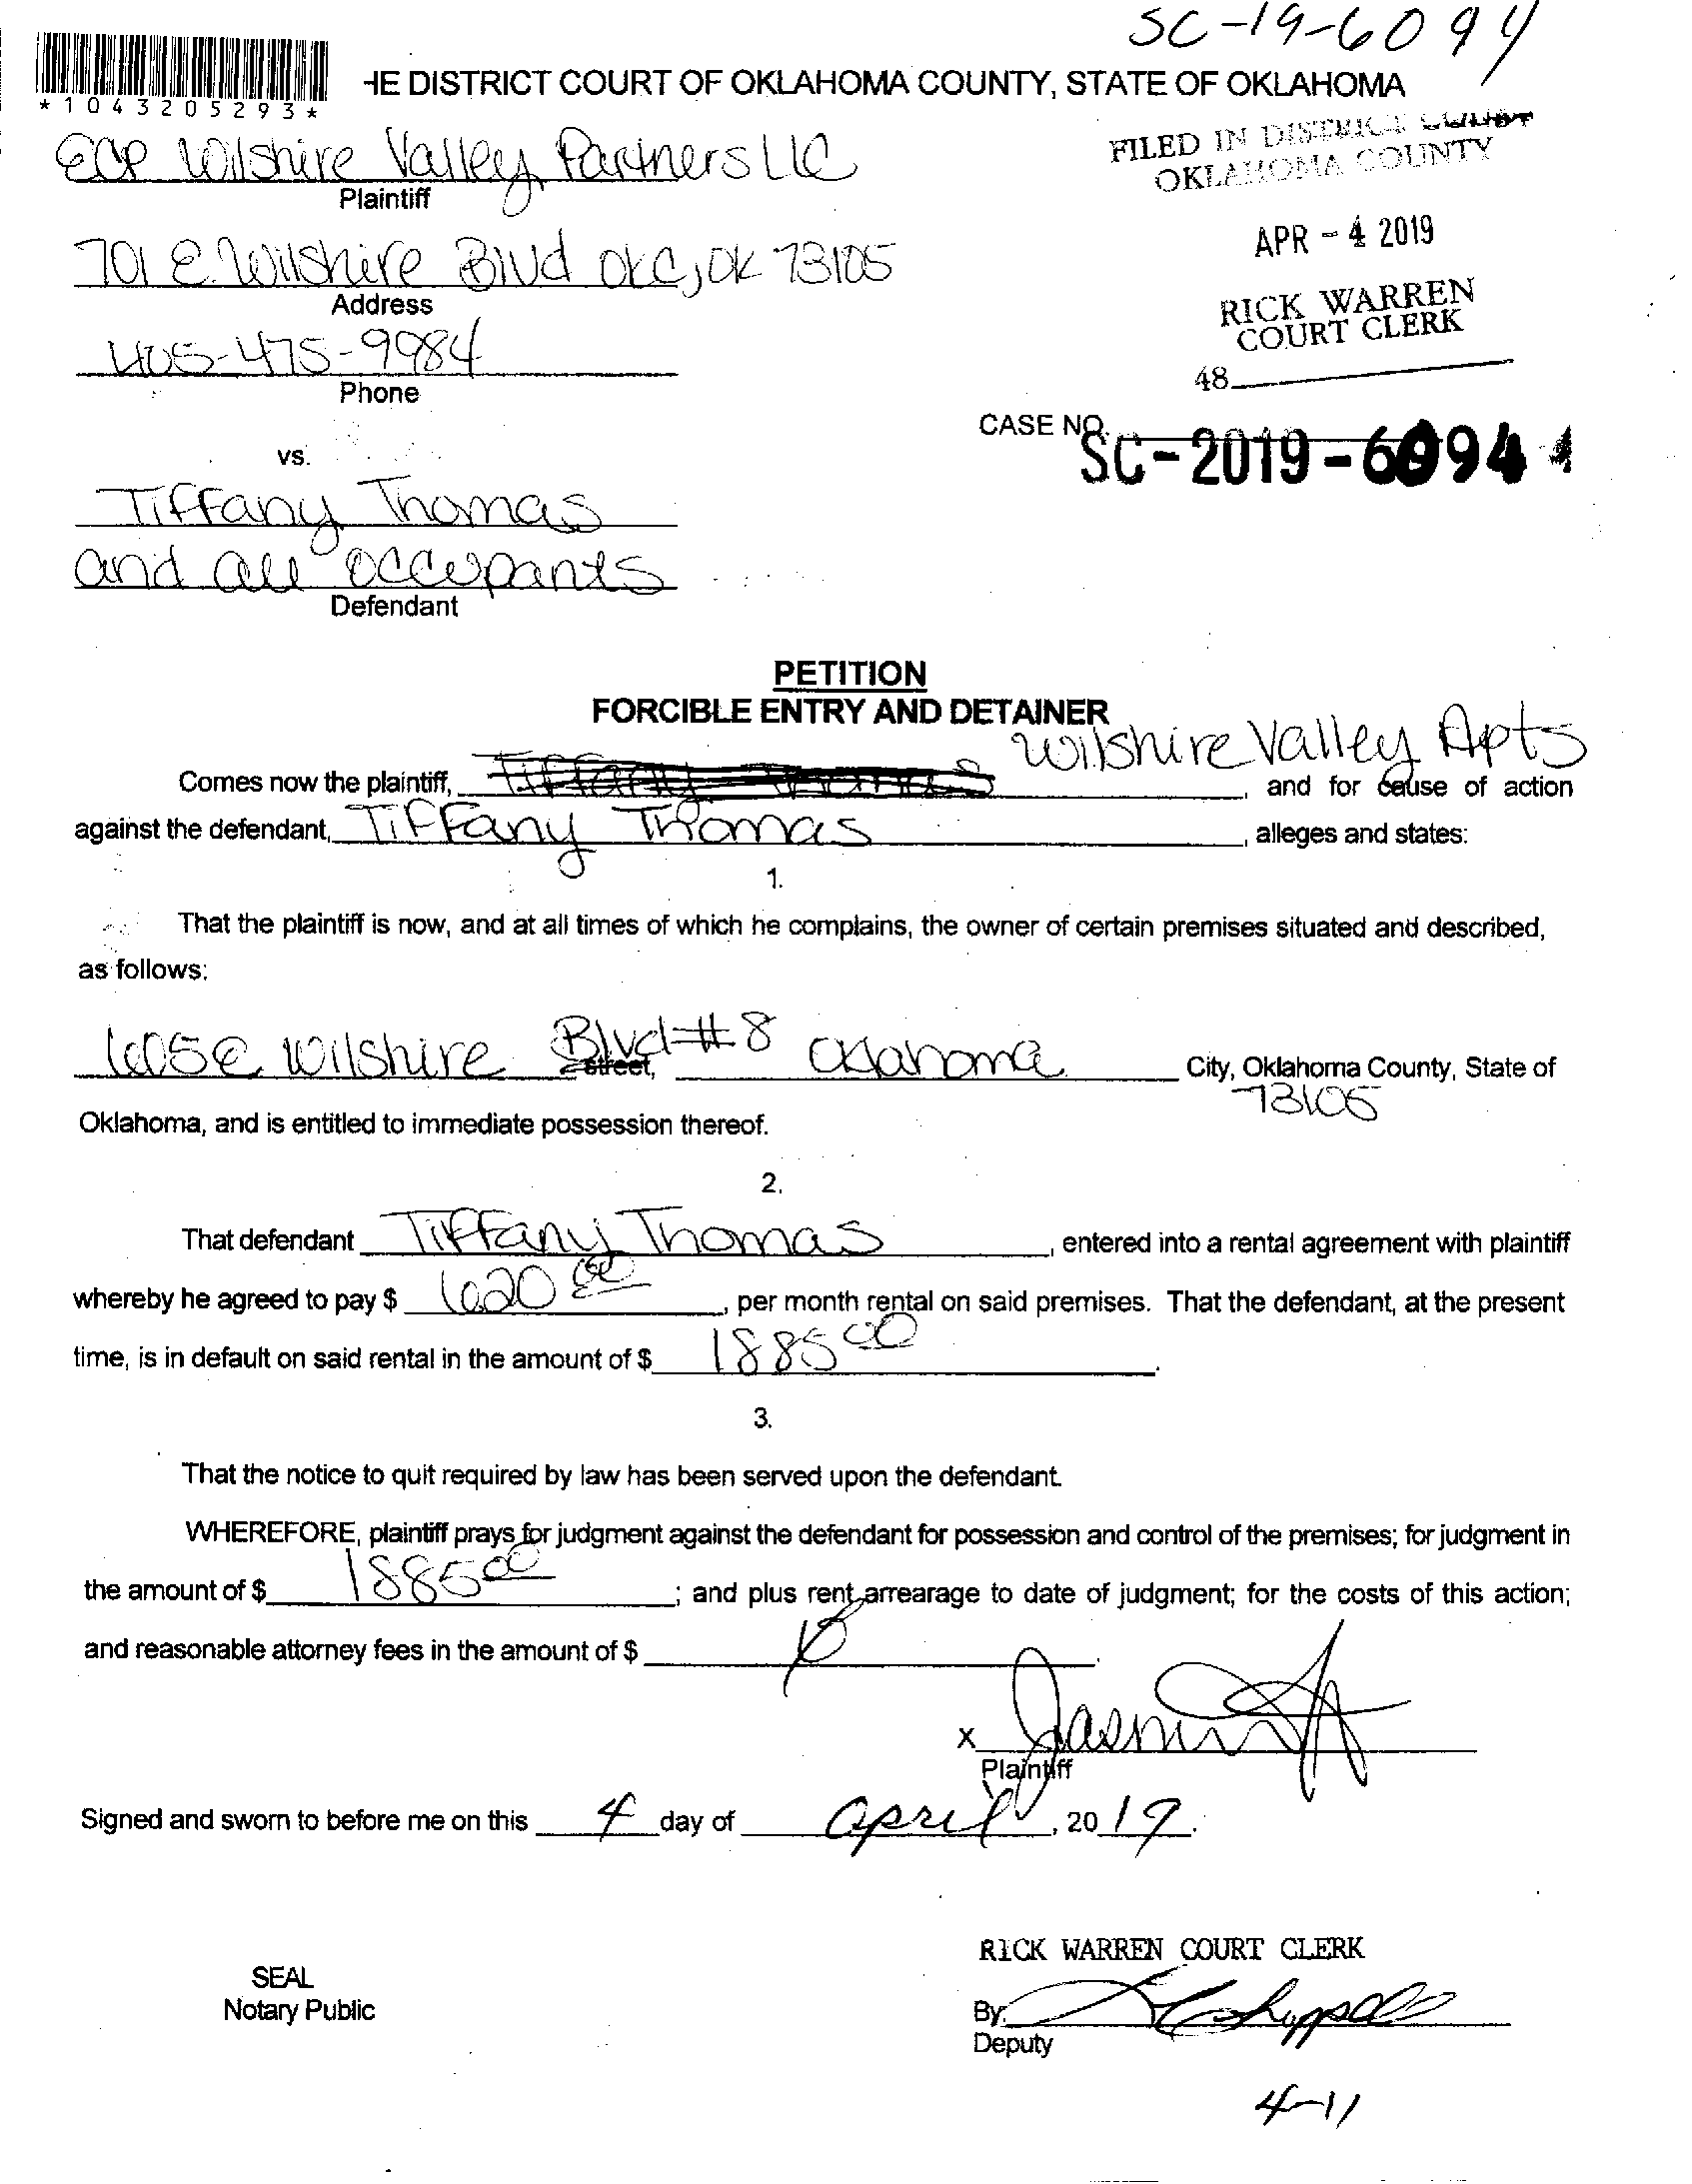 SC-19-6094
*1043205293*
HE DISTRICT COURT OF OKLAHOMA COUNTY, STATE OF OKLAHOMA
FILED IN DISTRICT COURT
OKLAHOMA COUNTY
ECP Wilshire Valley Partners LLC
Plaintiff
APR - 4 2019
701 E. Wilshire Blvd OKC, OK 73105
Address
RICK WARREN
COURT CLERK
405-475-9984
Phone
48
CASE NO. SC-2019-6094
vs.
Tiffany Thomas
and all occupants
Defendant
PETITION
FORCIBLE ENTRY AND DETAINER
Comes now the plaintiff, Tiffany Thomas Wilshire Valley Apts, and for cause of action
against the defendant, Tiffany Thomas, alleges and states:
1.
That the plaintiff is now, and at all times of which he complains, the owner of certain premises situated and described,
as follows:
605 E Wilshire Blvd #8 street, Oklahoma City, Oklahoma County, State of
73105
Oklahoma, and is entitled to immediate possession thereof.
2.
That defendant Tiffany Thomas, entered into a rental agreement with plaintiff
whereby he agreed to pay $ 620 00, per month rental on said premises. That the defendant, at the present
time, is in default on said rental in the amount of $ 1885 00.
3.
That the notice to quit required by law has been served upon the defendant.
WHEREFORE, plaintiff prays for judgment against the defendant for possession and control of the premises; for judgment in
the amount of $ 1885 00; and plus rent arrearage to date of judgment; for the costs of this action;
and reasonable attorney fees in the amount of $
X
Plaintiff
Signed and sworn to before me on this 4 day of April, 2019.
RICK WARREN COURT CLERK
SEAL
Notary Public
By:
Deputy
4-11